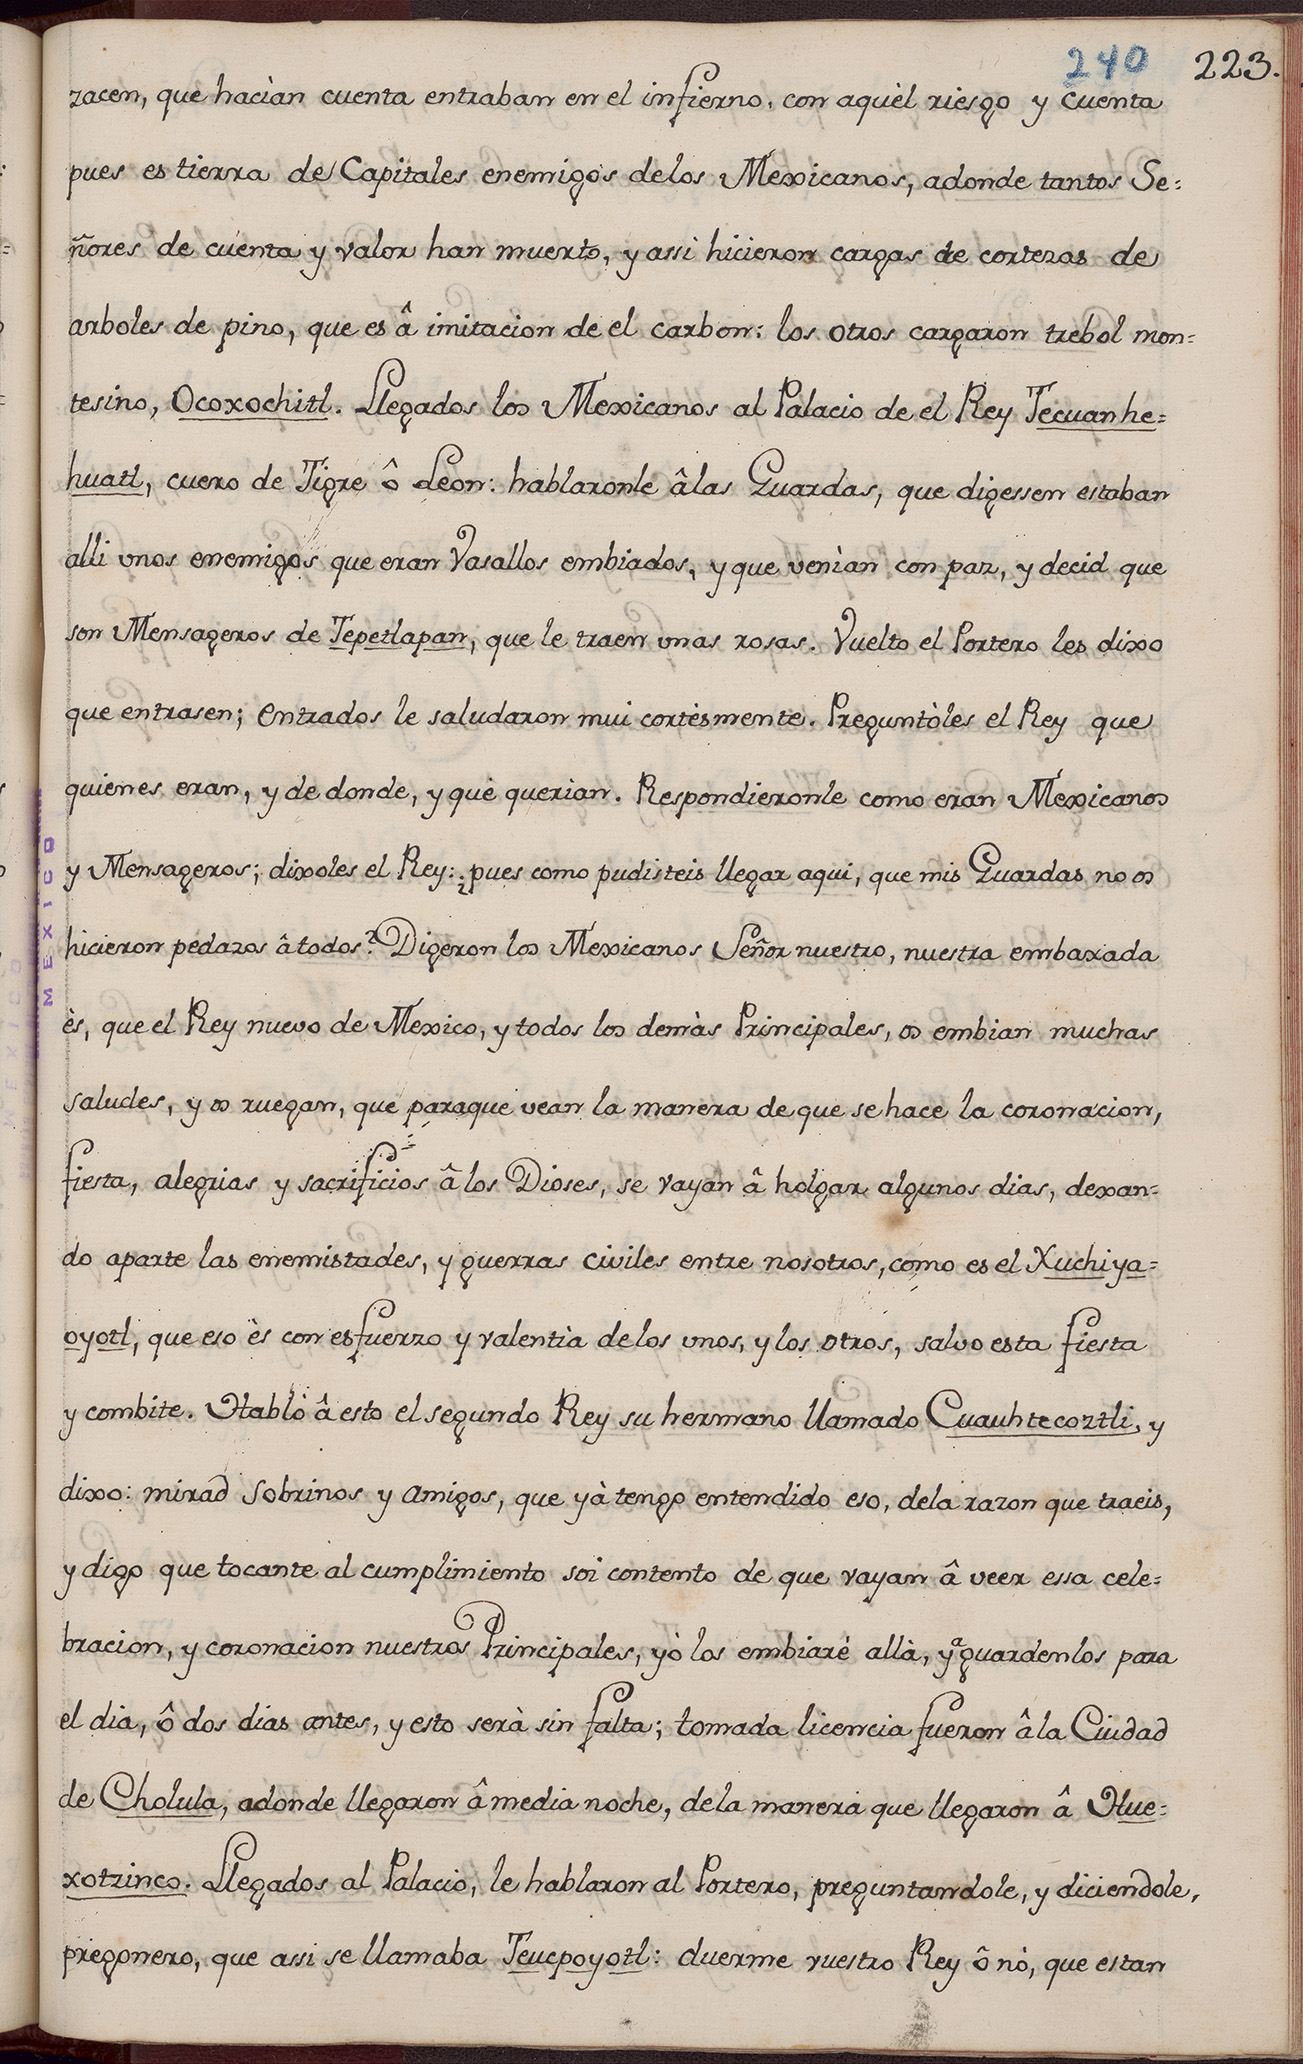 240 223.
zacen, què hacìan cuenta entraban en el infierno, con aquèl riesgo y cuenta
pues es tierra de Capitales enemigos de los Mexicanos, adonde tantos Se=
ñores de cuenta y valor han muerto, y assi hicieron cargas de cortezas de
arboles de pino, que es â imitacion de el carbon: los otros cargaron trebol mon=
tesino, Ocoxochitl. Llegados los Mexicanos al Palacio de el Rey Tecuanhe=
huatl, cuero de Tigre ô Leon: hablaronle âlas Guardas, que digessen estaban
alli unos enemigos que eran Vasallos embiados, y que venìan con paz, y decid que
son Mensageros de Tepetlapan, que le traen unas rosas. Vuelto el Portero les dixo
que entrasen; entrados le saludaron mui cortèsmente. Preguntòles el Rey que
quienes eran, y de donde, y què querian. Respondieronle como eran Mexicanos
y Mensageros; dixoles el Rey: ¿pues como pudisteis llegar aqui, que mis Guardas no os
hicieron pedazos â todos? Digeron los Mexicanos Señor nuestro, nuestra embaxada
ès, que el Rey nuevo de Mexico, y todos los demàs Principales, os embian muchas
saludes, y os ruegan, que paraque vean la manera de que se hace la coronacion,
fiesta, alegrias y sacrificios â los Dioses, se vayan â holgar algunos dias, dexan=
do aparte las enemistades, y guerras civiles entre nosotros, como es el Xuchiya=
oyotl, que eso ès con esfuerzo y valentìa de los unos, y los otros, salvo esta fiesta
y combite. Hablò â esto el segundo Rey su hermano llamado Cuauhtecoztli, y
dixo: mirad sobrinos y amigos, que yà tengo entendido eso, dela razon que traeis,
y digo que tocante al cumplimiento soi contento de que vayan â veer essa cele=
bracion, y coronacion nuestros Principales, yò los embiarè allà, y aguardenlos para
el dia, ô dos dias antes, y esto serà sin falta; tomada licencia fueron âla Ciudad
de Cholula, adonde llegaron â media noche, dela manera que llegaron â Hue=
xotzinco. Llegados al Palacio, le hablaron al Portero, preguntandole, y diciendole,
pregonero, que assi se llamaba Teucpoyotl: duerme vuestro Rey ô nò, que estan
MEXICO